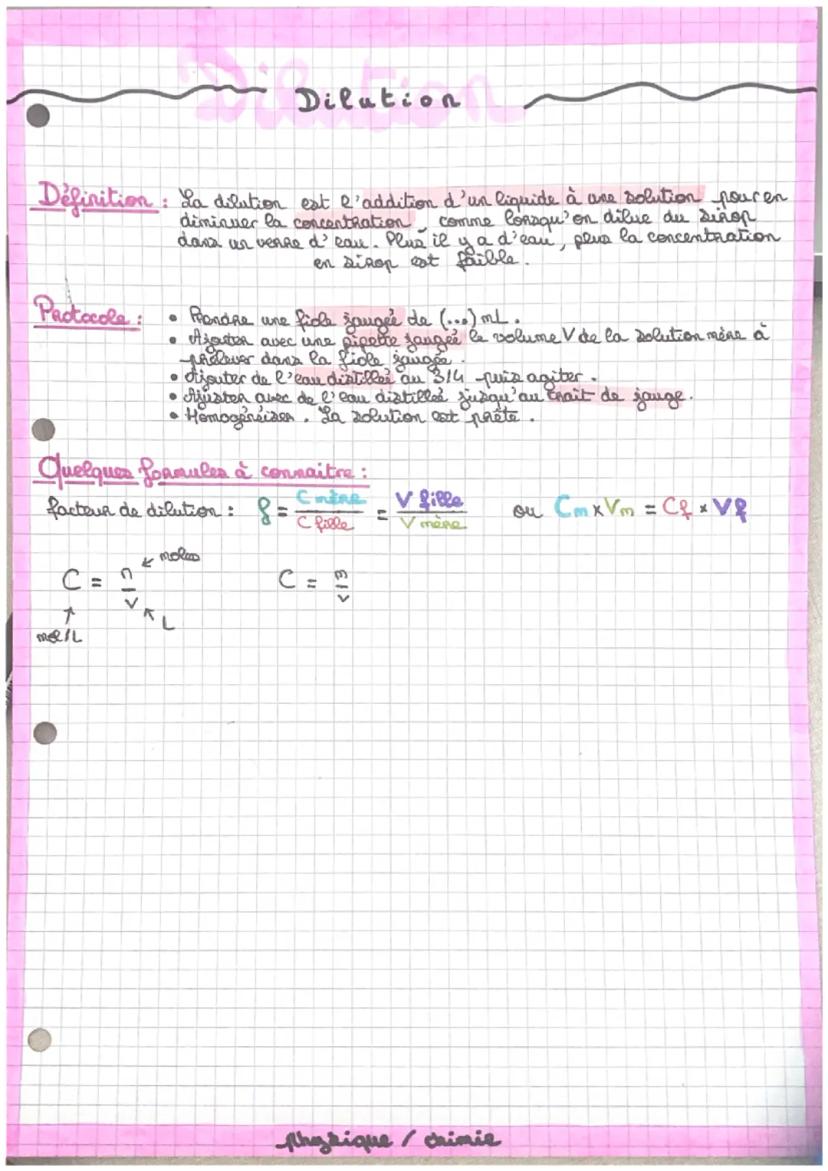 Dilution
Définition : La dilution est l'addition d'un liquide à une solution pour en
diminuer la concentration, comme lorsqu'on dilue du sirop
dans un verre d'eau. Plus il y a d'eau, plus la concentration
en sirop est faible.
Protocole :
• Prendre une fiole jaugée de (...) mL.
• Ajouter avec une pipette jaugée le volume V de la solution mère à
prélever dans la fiole jaugée.
• Ajouter de l'eau distillée au 3/4 puis agiter.
• Ajuster avec de l'eau distillée jusqu'au trait de jauge.
• Homogénéiser. La solution est prête.
Quelques formules à connaitre :
facteur de dilution : f = C mère / C fille = V fille / V mère ou Cm x Vm = Cf x Vf
C = n / v ← moles C = m / v
↑ ↖ L
mol/L
physique / chimie